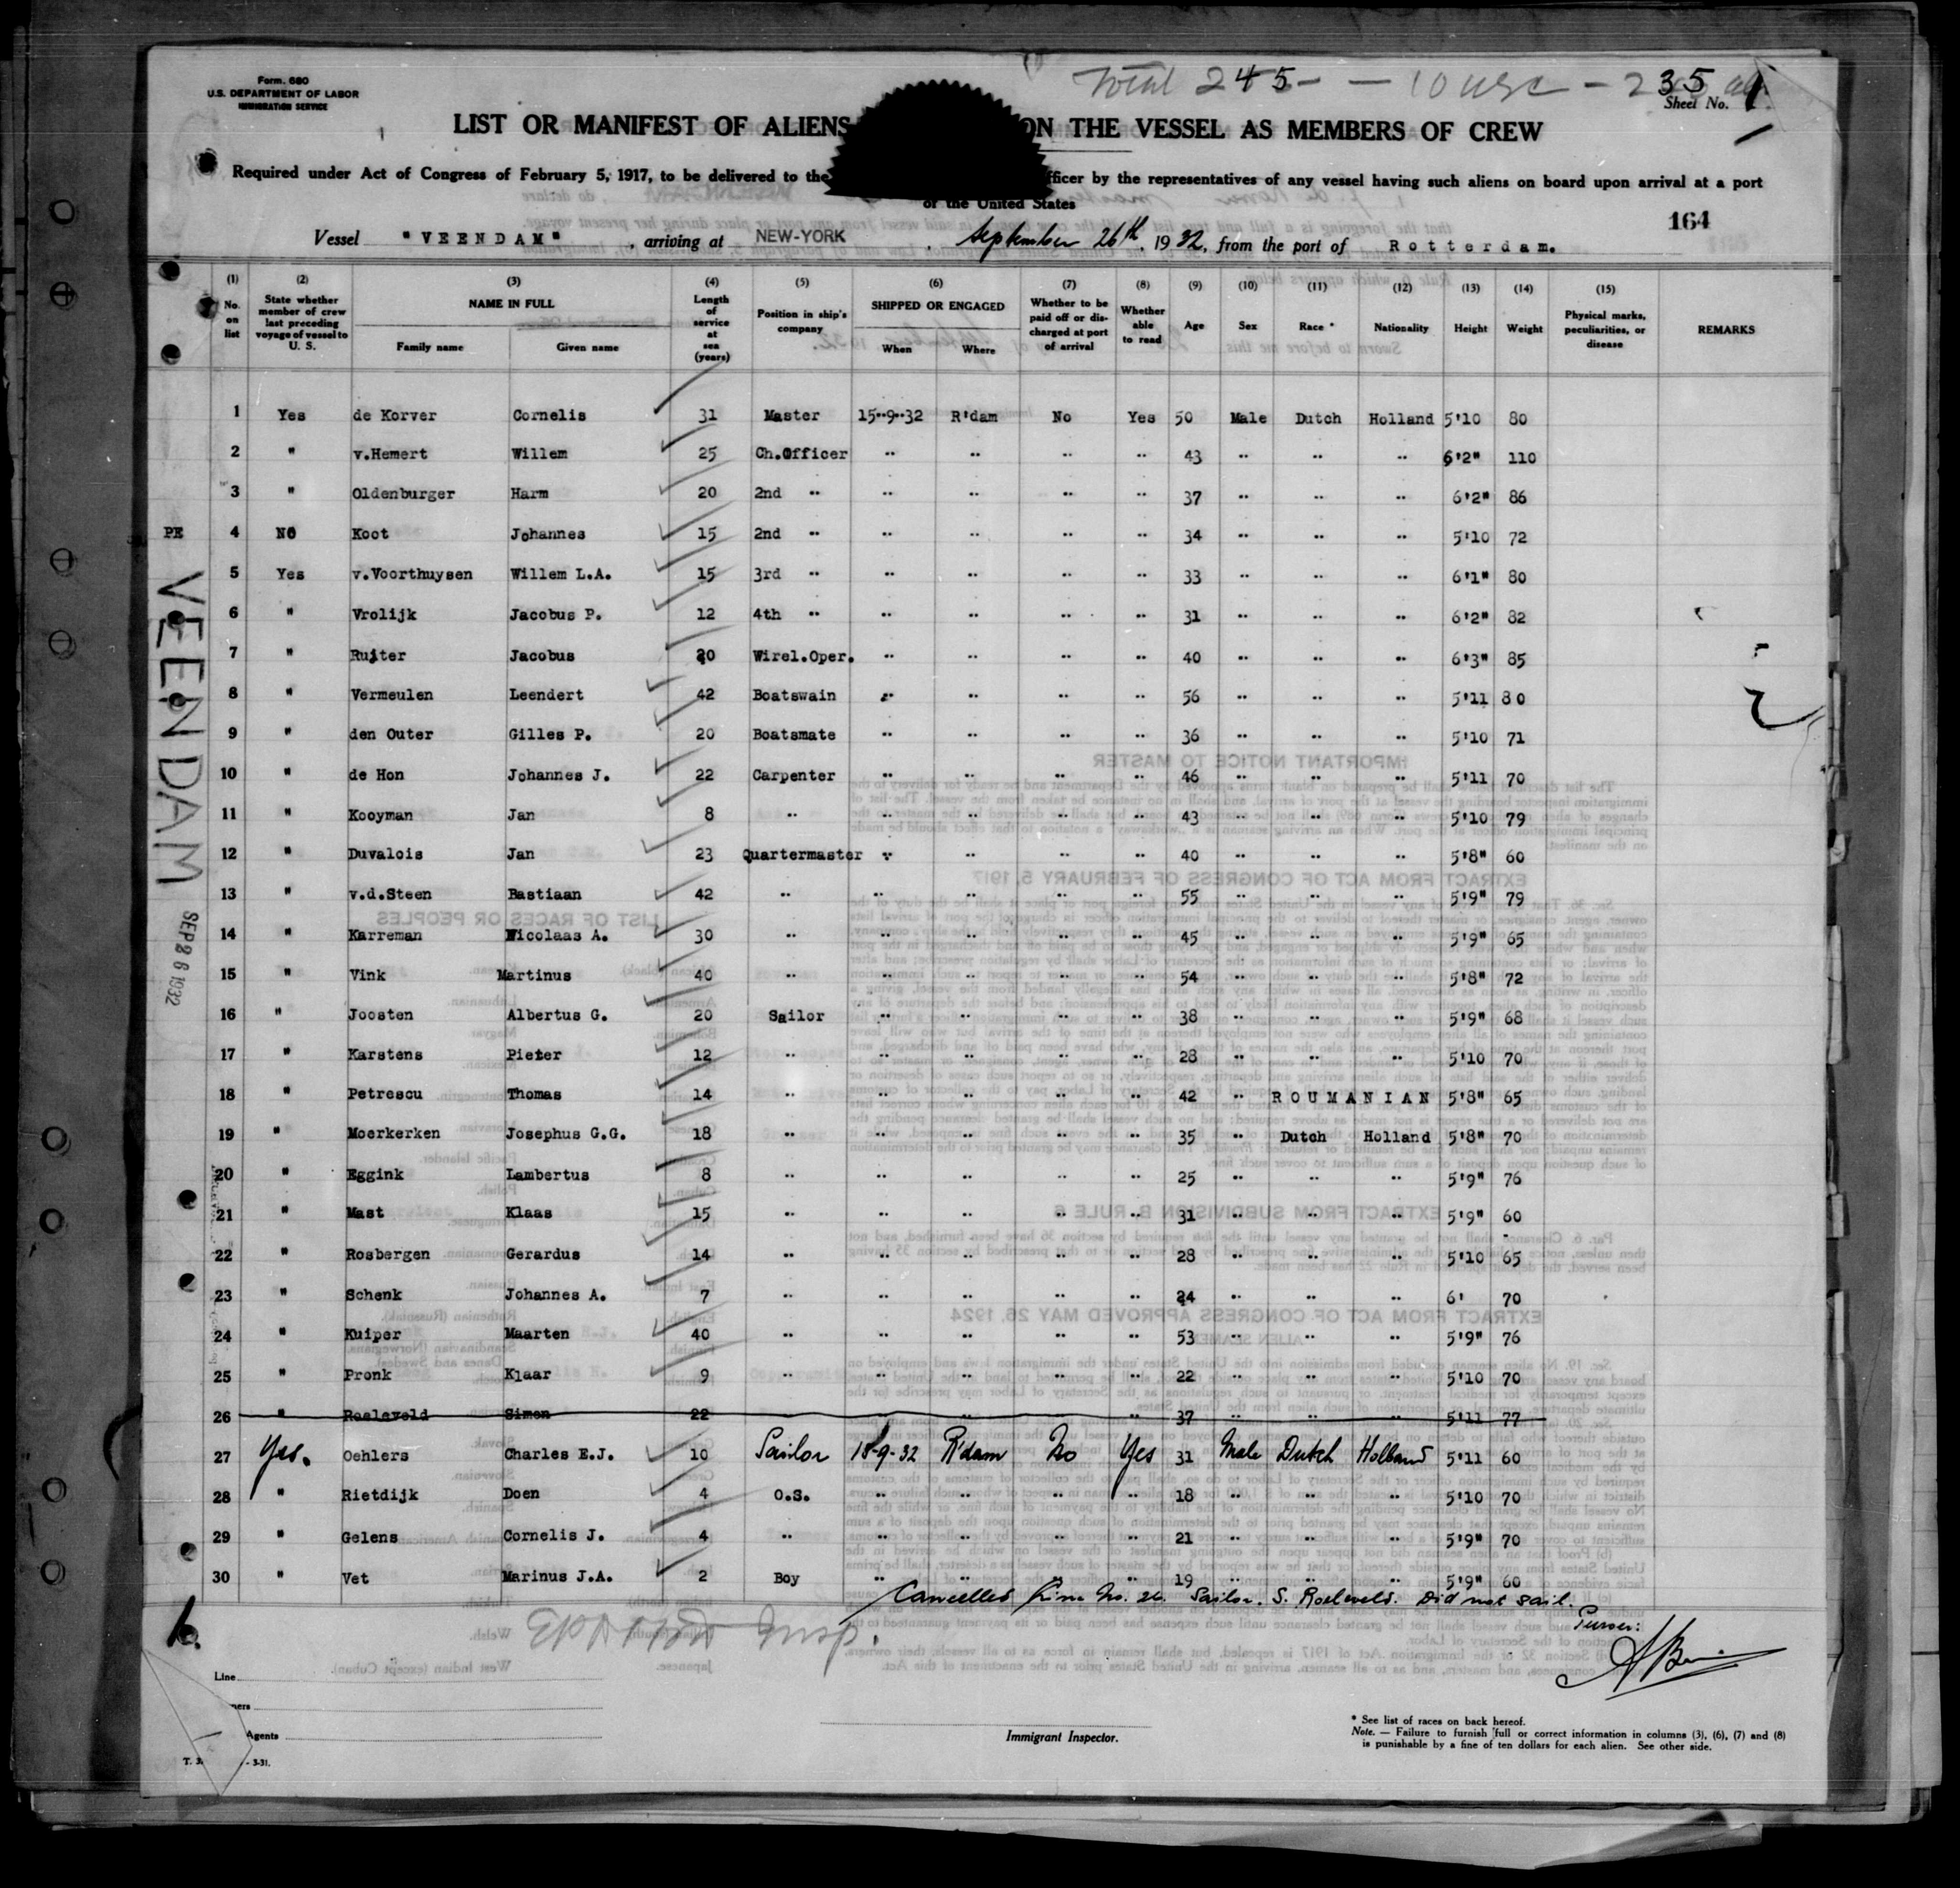 Form. 680
U.S. DEPARTMENT OF LABOR
IMMIGRATION SERVICE
Total 245 - - 10 USC - 235
Sheet No. 1
LIST OR MANIFEST OF ALIENS ON THE VESSEL AS MEMBERS OF CREW
Required under Act of Congress of February 5, 1917, to be delivered to the fficer by the representatives of any vessel having such aliens on board upon arrival at a port
of the United States
164
Vessel "VEENDAM", arriving at NEW-YORK, September 26th, 1932, from the port of Rotterdam.
(1) (2) (3) (4) (5) (6) (7) (8) (9) (10) (11) (12) (13) (14) (15)
No. on list State whether member of crew last preceding voyage of vessel to U. S. NAME IN FULL Family name Given name Length of service at sea (years) Position in ship's company SHIPPED OR ENGAGED When Where Whether to be paid off or discharged at port of arrival Whether able to read Age Sex Race * Nationality Height Weight Physical marks, peculiarities, or disease REMARKS
1 Yes de Korver Cornelis 31 Master 15-9-32 R'dam No Yes 50 Male Dutch Holland 5'10 80
2 " v.Hemert Willem 25 Ch.Officer " " " " 43 " " " 6'2" 110
3 " Oldenburger Harm 20 2nd " " " " " 37 " " " 6'2" 86
PE 4 No Koot Johannes 15 2nd " " " " " 34 " " " 5'10 72
5 Yes v.Voorthuysen Willem L.A. 15 3rd " " " " " 33 " " " 6'1" 80
6 " Vrolijk Jacobus P. 12 4th " " " " " 31 " " " 6'2" 82
7 " Ruiter Jacobus 20 Wirel.Oper. " " " " 40 " " " 6'3" 85
8 " Vermeulen Leendert 42 Boatswain " " " " 56 " " " 5'11 80
9 " den Outer Gilles P. 20 Boatsmate " " " " 36 " " " 5'10 71
10 " de Hon Johannes J. 22 Carpenter " " " " 46 " " " 5'11 70
11 " Kooyman Jan 8 " " " " " 43 " " " 5'10 79
12 " Duvalois Jan 23 Quartermaster " " " " 40 " " " 5'8" 60
13 " v.d.Steen Bastiaan 42 " " " " " 55 " " " 5'9" 79
14 " Karreman Nicolaas A. 30 " " " " " 45 " " " 5'9" 65
15 " Vink Martinus 40 " " " " " 54 " " " 5'8" 72
16 " Joosten Albertus G. 20 Sailor " " " " 38 " " " 5'9" 68
17 " Karstens Pieter 12 " " " " " 28 " " " 5'10 70
18 " Petrescu Thomas 14 " " " " " 42 " ROUMANIAN 5'8" 65
19 " Moerkerken Josephus G.G. 18 " " " " " 35 " Dutch Holland 5'8" 70
20 " Eggink Lambertus 8 " " " " " 25 " " " 5'9" 76
21 " Mast Klaas 15 " " " " " 31 " " " 5'9" 60
22 " Rosbergen Gerardus 14 " " " " " 28 " " " 5'10 65
23 " Schenk Johannes A. 7 " " " " " 24 " " " 6' 70
24 " Kuiper Maarten 40 " " " " " 53 " " " 5'9" 76
25 " Pronk Klaar 9 " " " " " 22 " " " 5'10 70
26 " Roeleveld Simon 22 " " " " " 37 " " " 5'11 77
27 Yes. Oehlers Charles E.J. 10 Sailor 15-9-32 R'dam No Yes 31 Male Dutch Holland 5'11 60
28 " Rietdijk Doen 4 O.S. " " " " 18 " " " 5'10 70
29 " Gelens Cornelis J. 4 " " " " " 21 " " " 5'9" 70
30 " Vet Marinus J.A. 2 Boy " " " " 19 " " " 5'9" 60
VEENDAM
SEP 26 1932
Cancelled line No. 26. Sailor. S. Roeleveld. Did not sail.
Purser:
Insp.
Line
ners
Agents
Immigrant Inspector.
* See list of races on back hereof.
Note. — Failure to furnish full or correct information in columns (3), (6), (7) and (8)
is punishable by a fine of ten dollars for each alien. See other side.
T. 3 - 3-31.